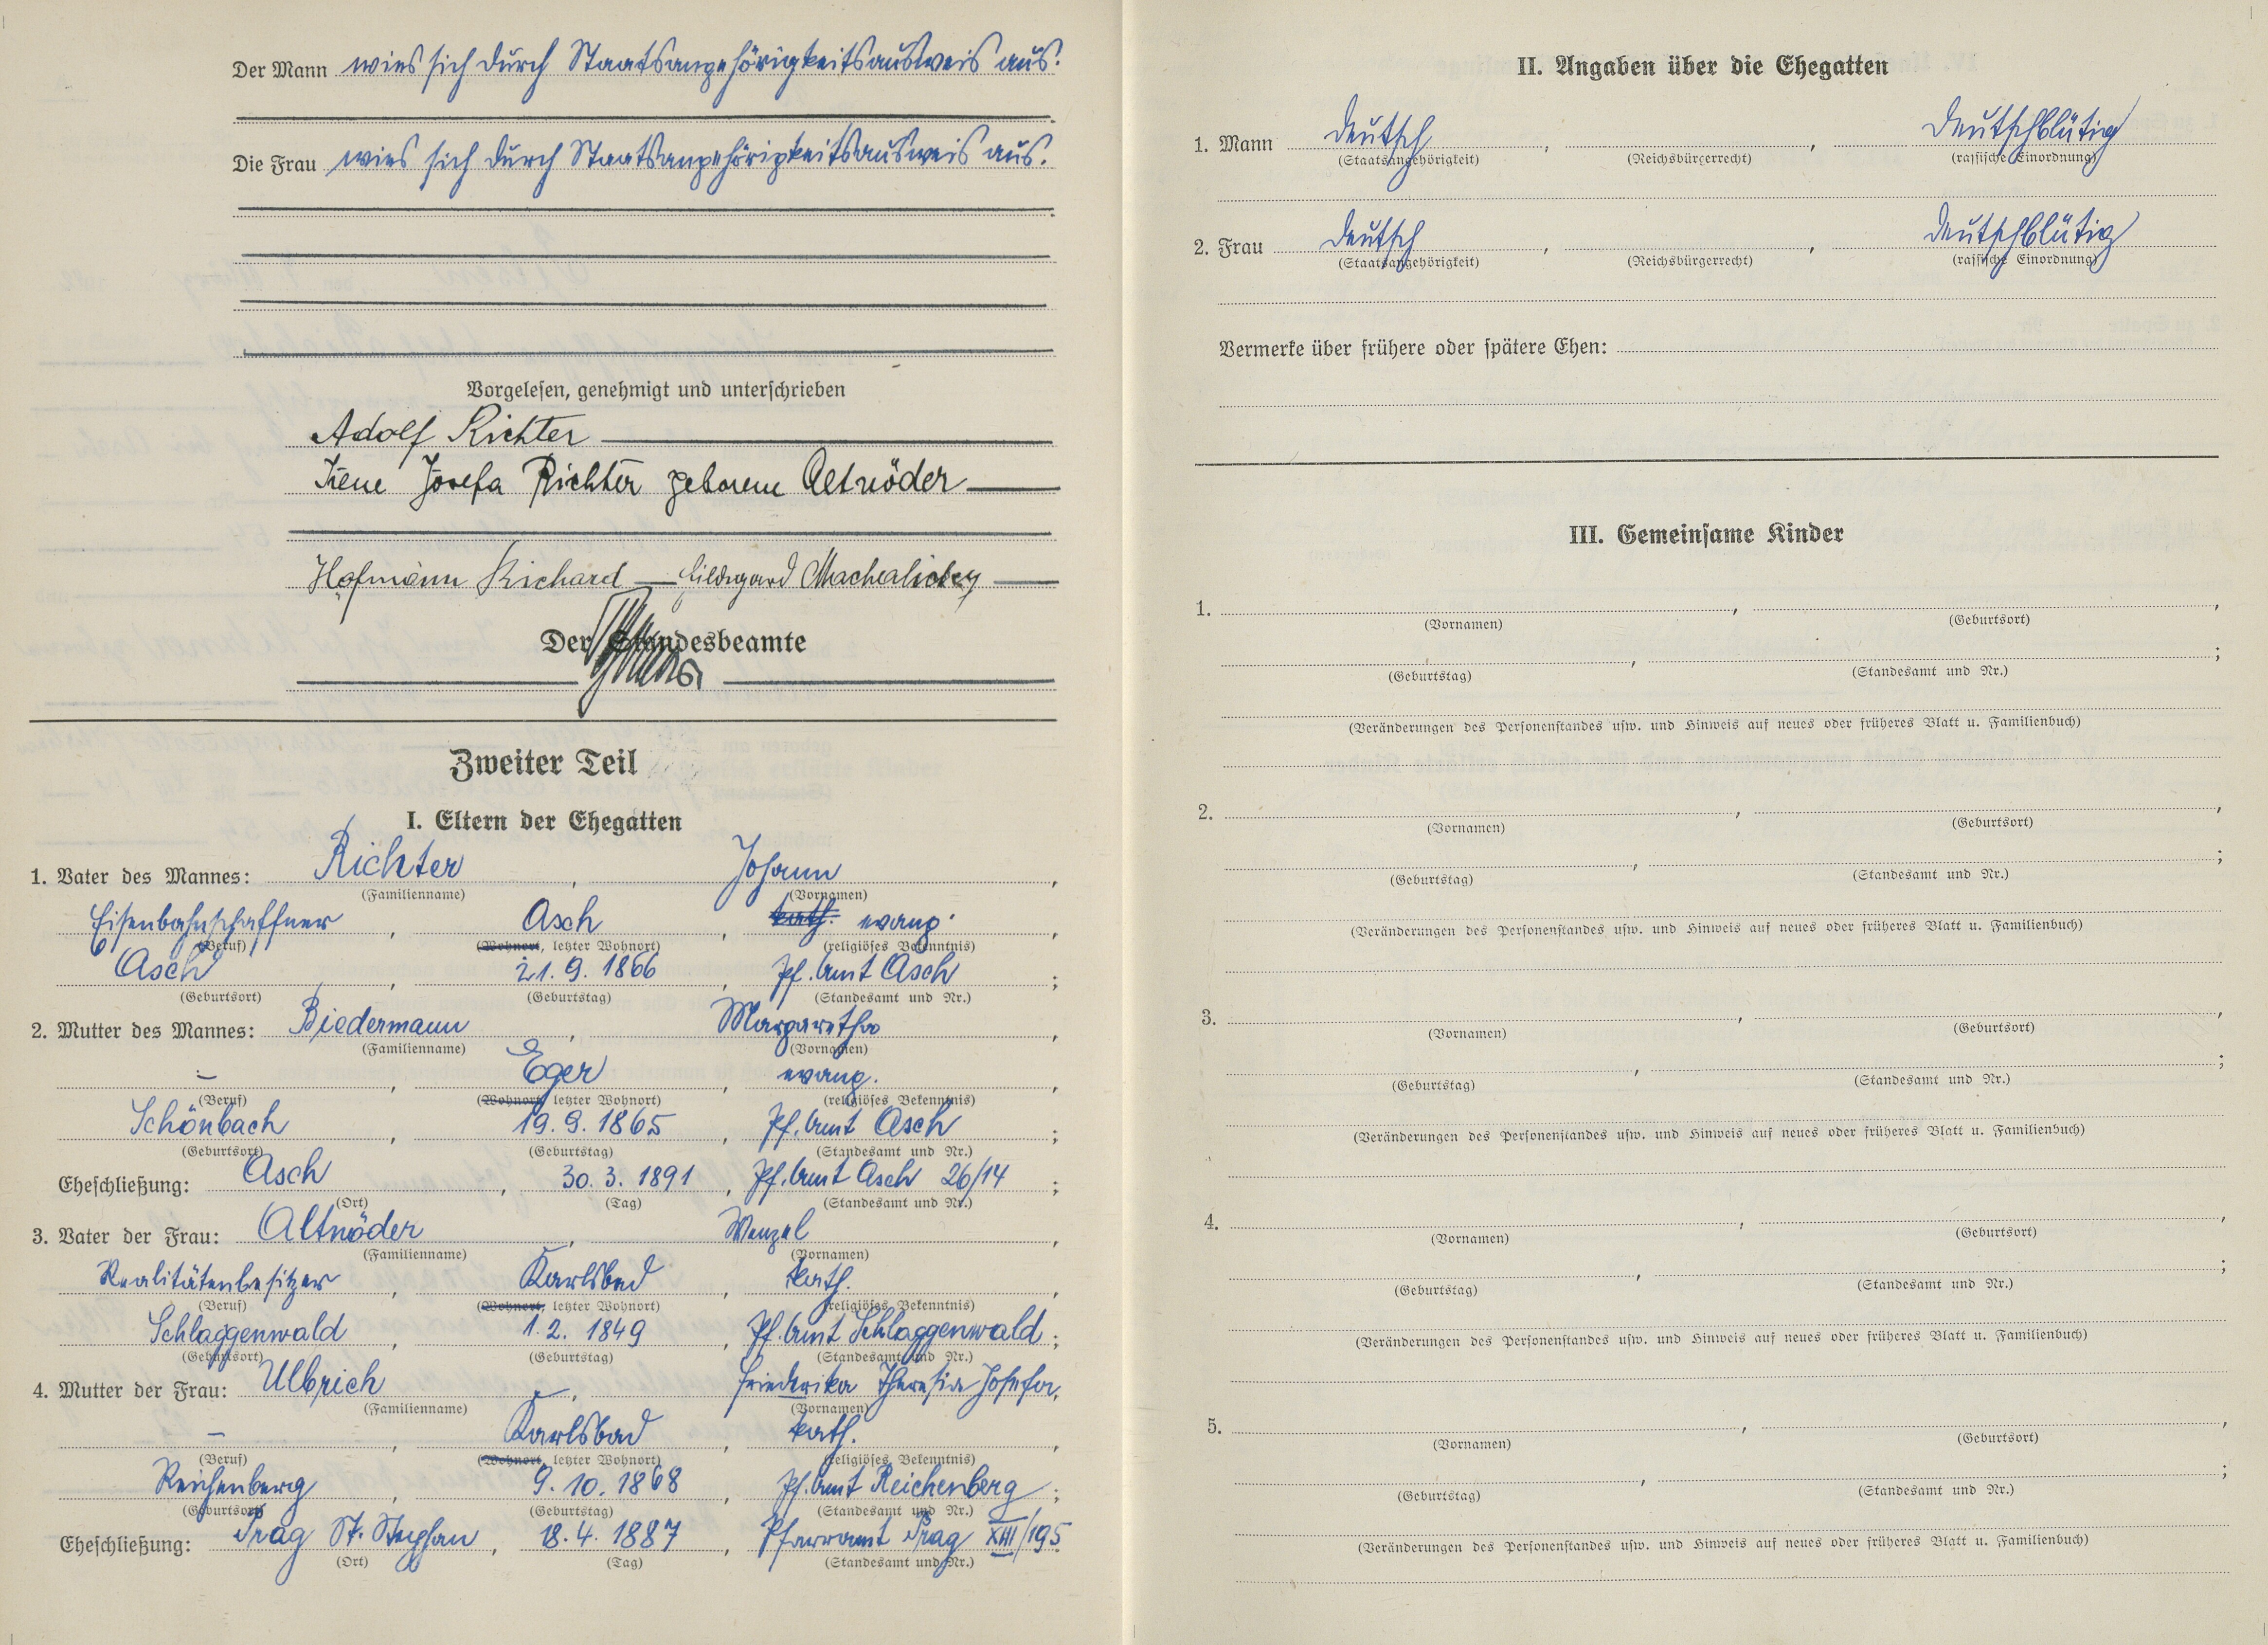 Der Mann wies sich durch Staatsangehörigkeitsausweis aus.
Die Frau wies sich durch Staatsangehörigkeitsausweis aus.
Vorgelesen, genehmigt und unterschrieben
Adolf Richter
Irene Josefa Richter geborene Altnöder
Hofmann Richard — Hildegard
Der Standesbeamte
Zweiter Teil
I. Eltern der Ehegatten
1. Vater des Mannes: Richter, Johann,
(Familienname) (Vornamen)
Eisenbahnschaffner, Asch, kath. evang.,
(Beruf) (Wohnort, letzter Wohnort) (religiöses Bekenntnis)
Asch, 21. 9. 1866, Pf. Amt Asch;
(Geburtsort) (Geburtstag) (Standesamt und Nr.)
2. Mutter des Mannes: Biedermann, Margaretha,
(Familienname) (Vornamen)
–, Eger, evang.,
(Beruf) (Wohnort, letzter Wohnort) (religiöses Bekenntnis)
Schönbach, 19. 9. 1865, Pf. Amt Asch;
(Geburtsort) (Geburtstag) (Standesamt und Nr.)
Eheschließung: Asch, 30. 3. 1891, Pf. Amt Asch 26/14;
(Ort) (Tag) (Standesamt und Nr.)
3. Vater der Frau: Altnöder, Wenzel,
(Familienname) (Vornamen)
Realitätenbesitzer, Karlsbad, kath.,
(Beruf) (Wohnort, letzter Wohnort) (religiöses Bekenntnis)
Schlaggenwald, 1. 2. 1849, Pf. Amt Schlaggenwald;
(Geburtsort) (Geburtstag) (Standesamt und Nr.)
4. Mutter der Frau: Ulbrich, Friederika Theresia Josefa,
(Familienname) (Vornamen)
–, Karlsbad, kath.,
(Beruf) (Wohnort, letzter Wohnort) (religiöses Bekenntnis)
Reichenberg, 9. 10. 1868, Pf. Amt Reichenberg;
(Geburtsort) (Geburtstag) (Standesamt und Nr.)
Eheschließung: Prag St. Stephan, 18. 4. 1887, Pfarramt Prag XIII/195
(Ort) (Tag) (Standesamt und Nr.)
II. Angaben über die Ehegatten
1. Mann deutsch, , deutschblütig
(Staatsangehörigkeit) (Reichsbürgerrecht) (rassische Einordnung)
2. Frau deutsch, , deutschblütig
(Staatsangehörigkeit) (Reichsbürgerrecht) (rassische Einordnung)
Vermerke über frühere oder spätere Ehen:
III. Gemeinsame Kinder
1. , ,
(Vornamen) (Geburtsort)
, ;
(Geburtstag) (Standesamt und Nr.)
(Veränderungen des Personenstandes usw. und Hinweis auf neues oder früheres Blatt u. Familienbuch)
2. , ,
(Vornamen) (Geburtsort)
, ;
(Geburtstag) (Standesamt und Nr.)
(Veränderungen des Personenstandes usw. und Hinweis auf neues oder früheres Blatt u. Familienbuch)
3. , ,
(Vornamen) (Geburtsort)
, ;
(Geburtstag) (Standesamt und Nr.)
(Veränderungen des Personenstandes usw. und Hinweis auf neues oder früheres Blatt u. Familienbuch)
4. , ,
(Vornamen) (Geburtsort)
, ;
(Geburtstag) (Standesamt und Nr.)
(Veränderungen des Personenstandes usw. und Hinweis auf neues oder früheres Blatt u. Familienbuch)
5. , ,
(Vornamen) (Geburtsort)
, ;
(Geburtstag) (Standesamt und Nr.)
(Veränderungen des Personenstandes usw. und Hinweis auf neues oder früheres Blatt u. Familienbuch)